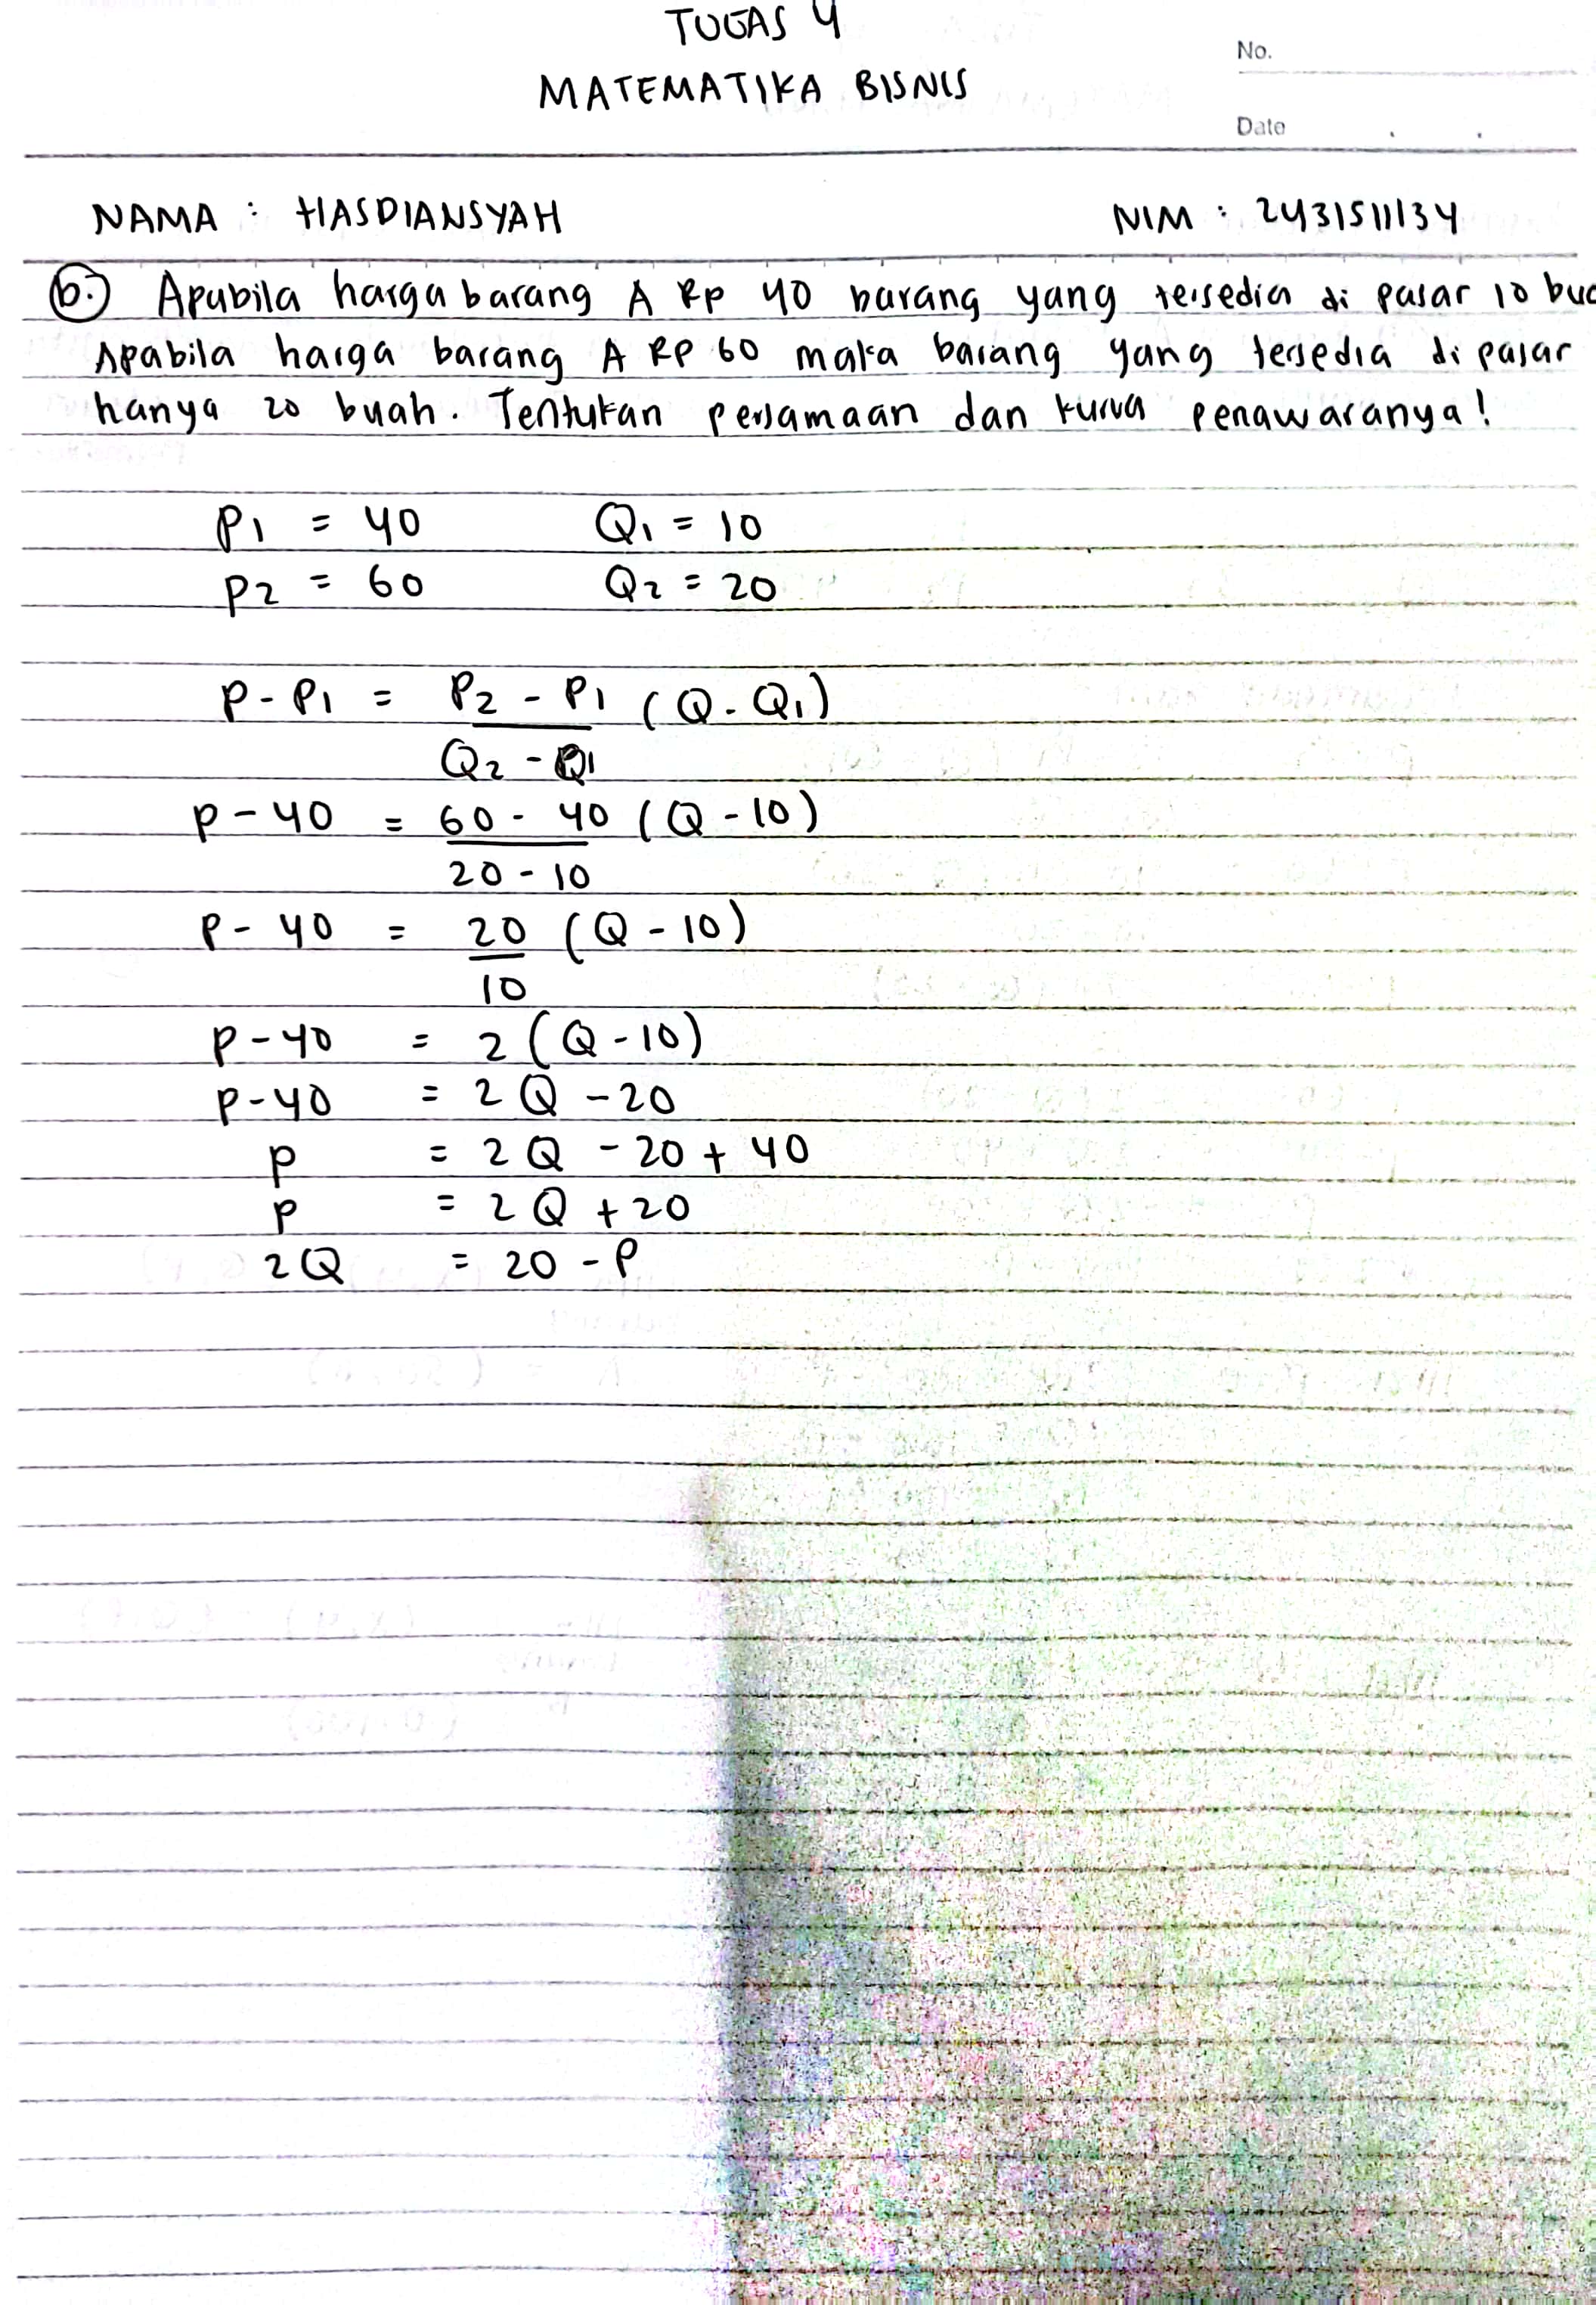 TUGAS 4
MATEMATIKA BISNIS
No.
Date
NAMA : HASDIANSYAH NIM : 2431511134
b. Apabila harga barang A Rp 40 barang yang tersedia di pasar 10 bua
Apabila harga barang A RP 60 maka barang yang tersedia di pasar
hanya 20 buah. Tentukan persamaan dan kurva penawaranya!
P1 = 40 Q1 = 10
P2 = 60 Q2 = 20
P - P1 = P2 - P1 (Q - Q1)
Q2 - Q1
P - 40 = 60 - 40 (Q - 10)
20 - 10
P - 40 = 20 (Q - 10)
10
P - 40 = 2 (Q - 10)
P - 40 = 2Q - 20
P = 2Q - 20 + 40
P = 2Q + 20
2Q = 20 - P